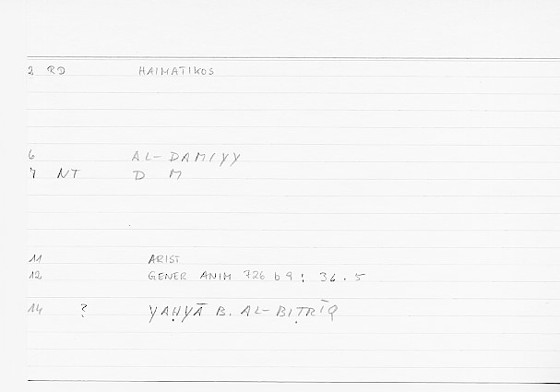 2 RD HAIMATIKOS
6 AL-DAMIYY
7 NT D M
11 ARIST
12 GENER ANIM 726 b 9 : 36.5
14 ? YAḤYĀ B. AL-BIṬRĪQ